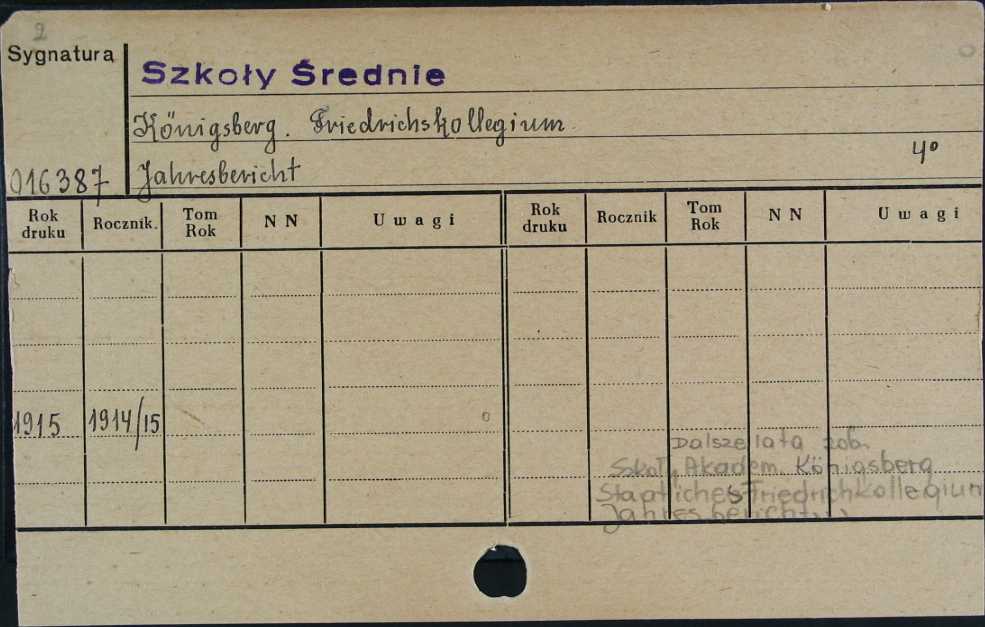 2
Sygnatura
Szkoły Średnie
Königsberg. Friedrichskollegium.
4°
016387
Jahresbericht
Rok druku
Rocznik.
Tom Rok
N N
Uwagi
Rok druku
Rocznik
Tom Rok
N N
Uwagi
1915
1914/15
Dalsze lata zob.
Akadem. Königsberg
Staatliches Friedrichkollegium
Jahresbericht...